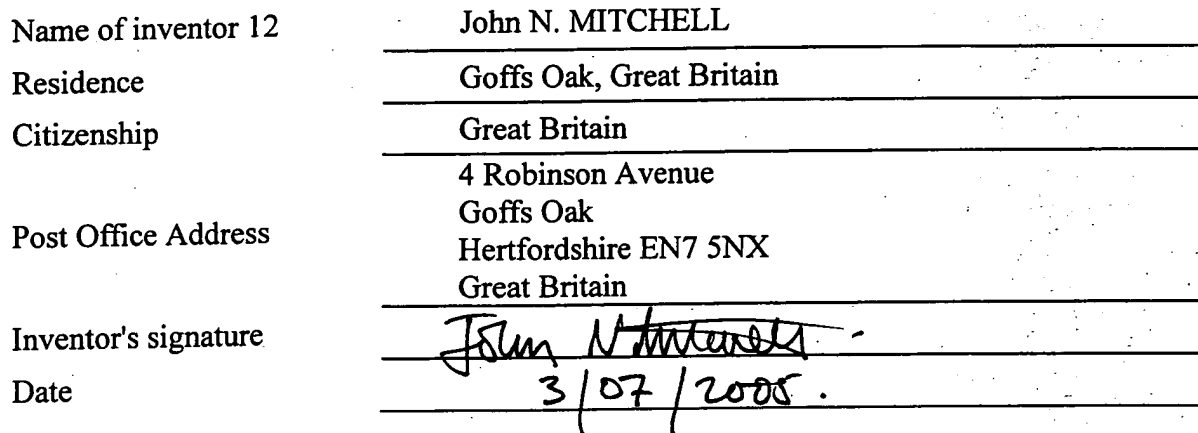 Name of inventor 12 John N. MITCHELL
Residence Goffs Oak, Great Britain
Citizenship Great Britain
Post Office Address 4 Robinson Avenue
Goffs Oak
Hertfordshire EN7 5NX
Great Britain
Inventor's signature John N Mitchell
Date 3/07/2005.